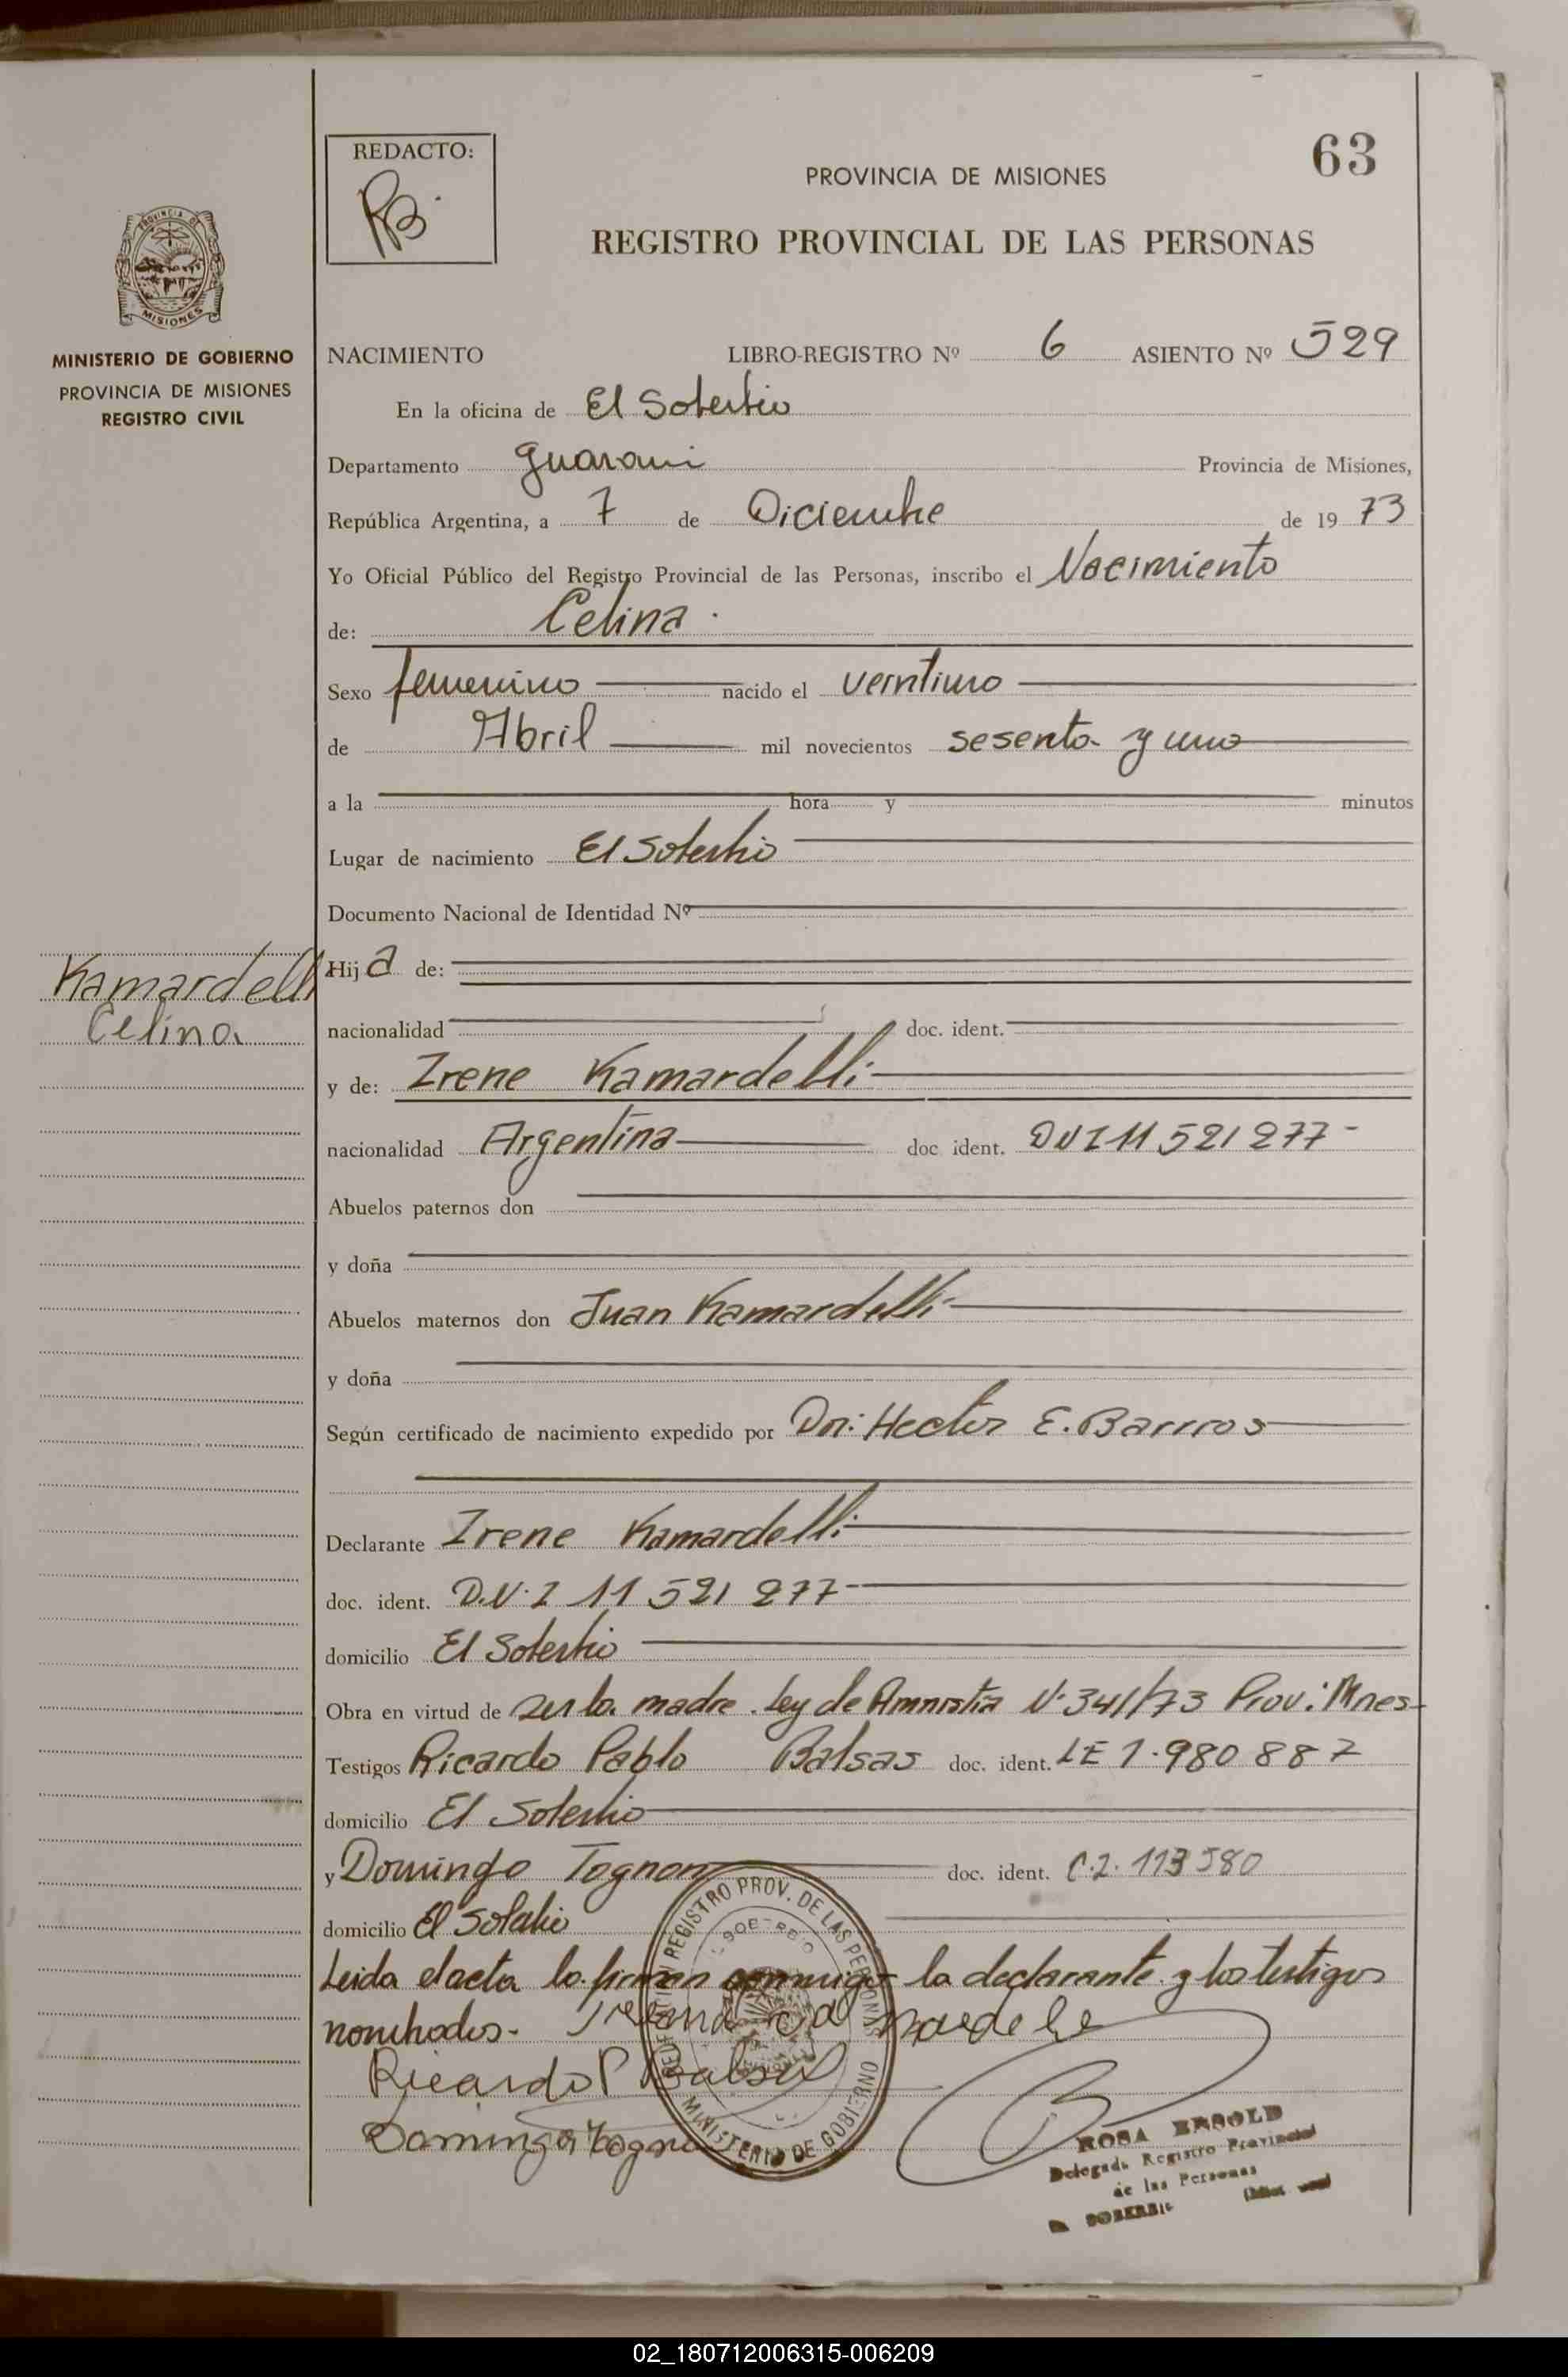 63
REDACTO:
RB.
PROVINCIA DE MISIONES
REGISTRO PROVINCIAL DE LAS PERSONAS
PROVINCIA DE
MISIONES
MINISTERIO DE GOBIERNO
PROVINCIA DE MISIONES
REGISTRO CIVIL
NACIMIENTO LIBRO-REGISTRO Nº 6 ASIENTO Nº 529
En la oficina de El Soberbio
Departamento Guarani Provincia de Misiones,
República Argentina, a 7 de Diciembre de 19 73
Yo Oficial Público del Registro Provincial de las Personas, inscribo el Nacimiento
de: Celina.
Sexo femenino nacido el veintiuno
de Abril mil novecientos sesenta y uno
a la hora y minutos
Lugar de nacimiento El Soberbio
Documento Nacional de Identidad Nº
Kamardelli
Celina
Hij a de:
nacionalidad doc. ident.
y de: Irene Kamardelli
nacionalidad Argentina doc ident. DNI 11 521 277-
Abuelos paternos don
y doña
Abuelos maternos don Juan Kamardelli
y doña
Según certificado de nacimiento expedido por Dr: Hector E. Barrios
Declarante Irene Kamardelli
doc. ident. D.N.I 11 521 277-
domicilio El Soberbio
Obra en virtud de ser la madre. Ley de Amnistia Nº 341/73 Prov: Mnes-
Testigos Ricardo Pablo Balsas doc. ident. LE 7.980 887
domicilio El Soberbio
y Domingo Tognon doc. ident. C.I. 113580
domicilio El Soberbio
Leida el acta la firman conmigo la declarante y los testigos
nombrados-
Ricardo P Balsas
Domingo Togno
REGISTRO PROV. DE LAS PERSONAS
MINISTERIO DE GOBIERNO
ROSA
Delegada Registro Provincial
de las Personas
SOBERBIO
02_180712006315-006209